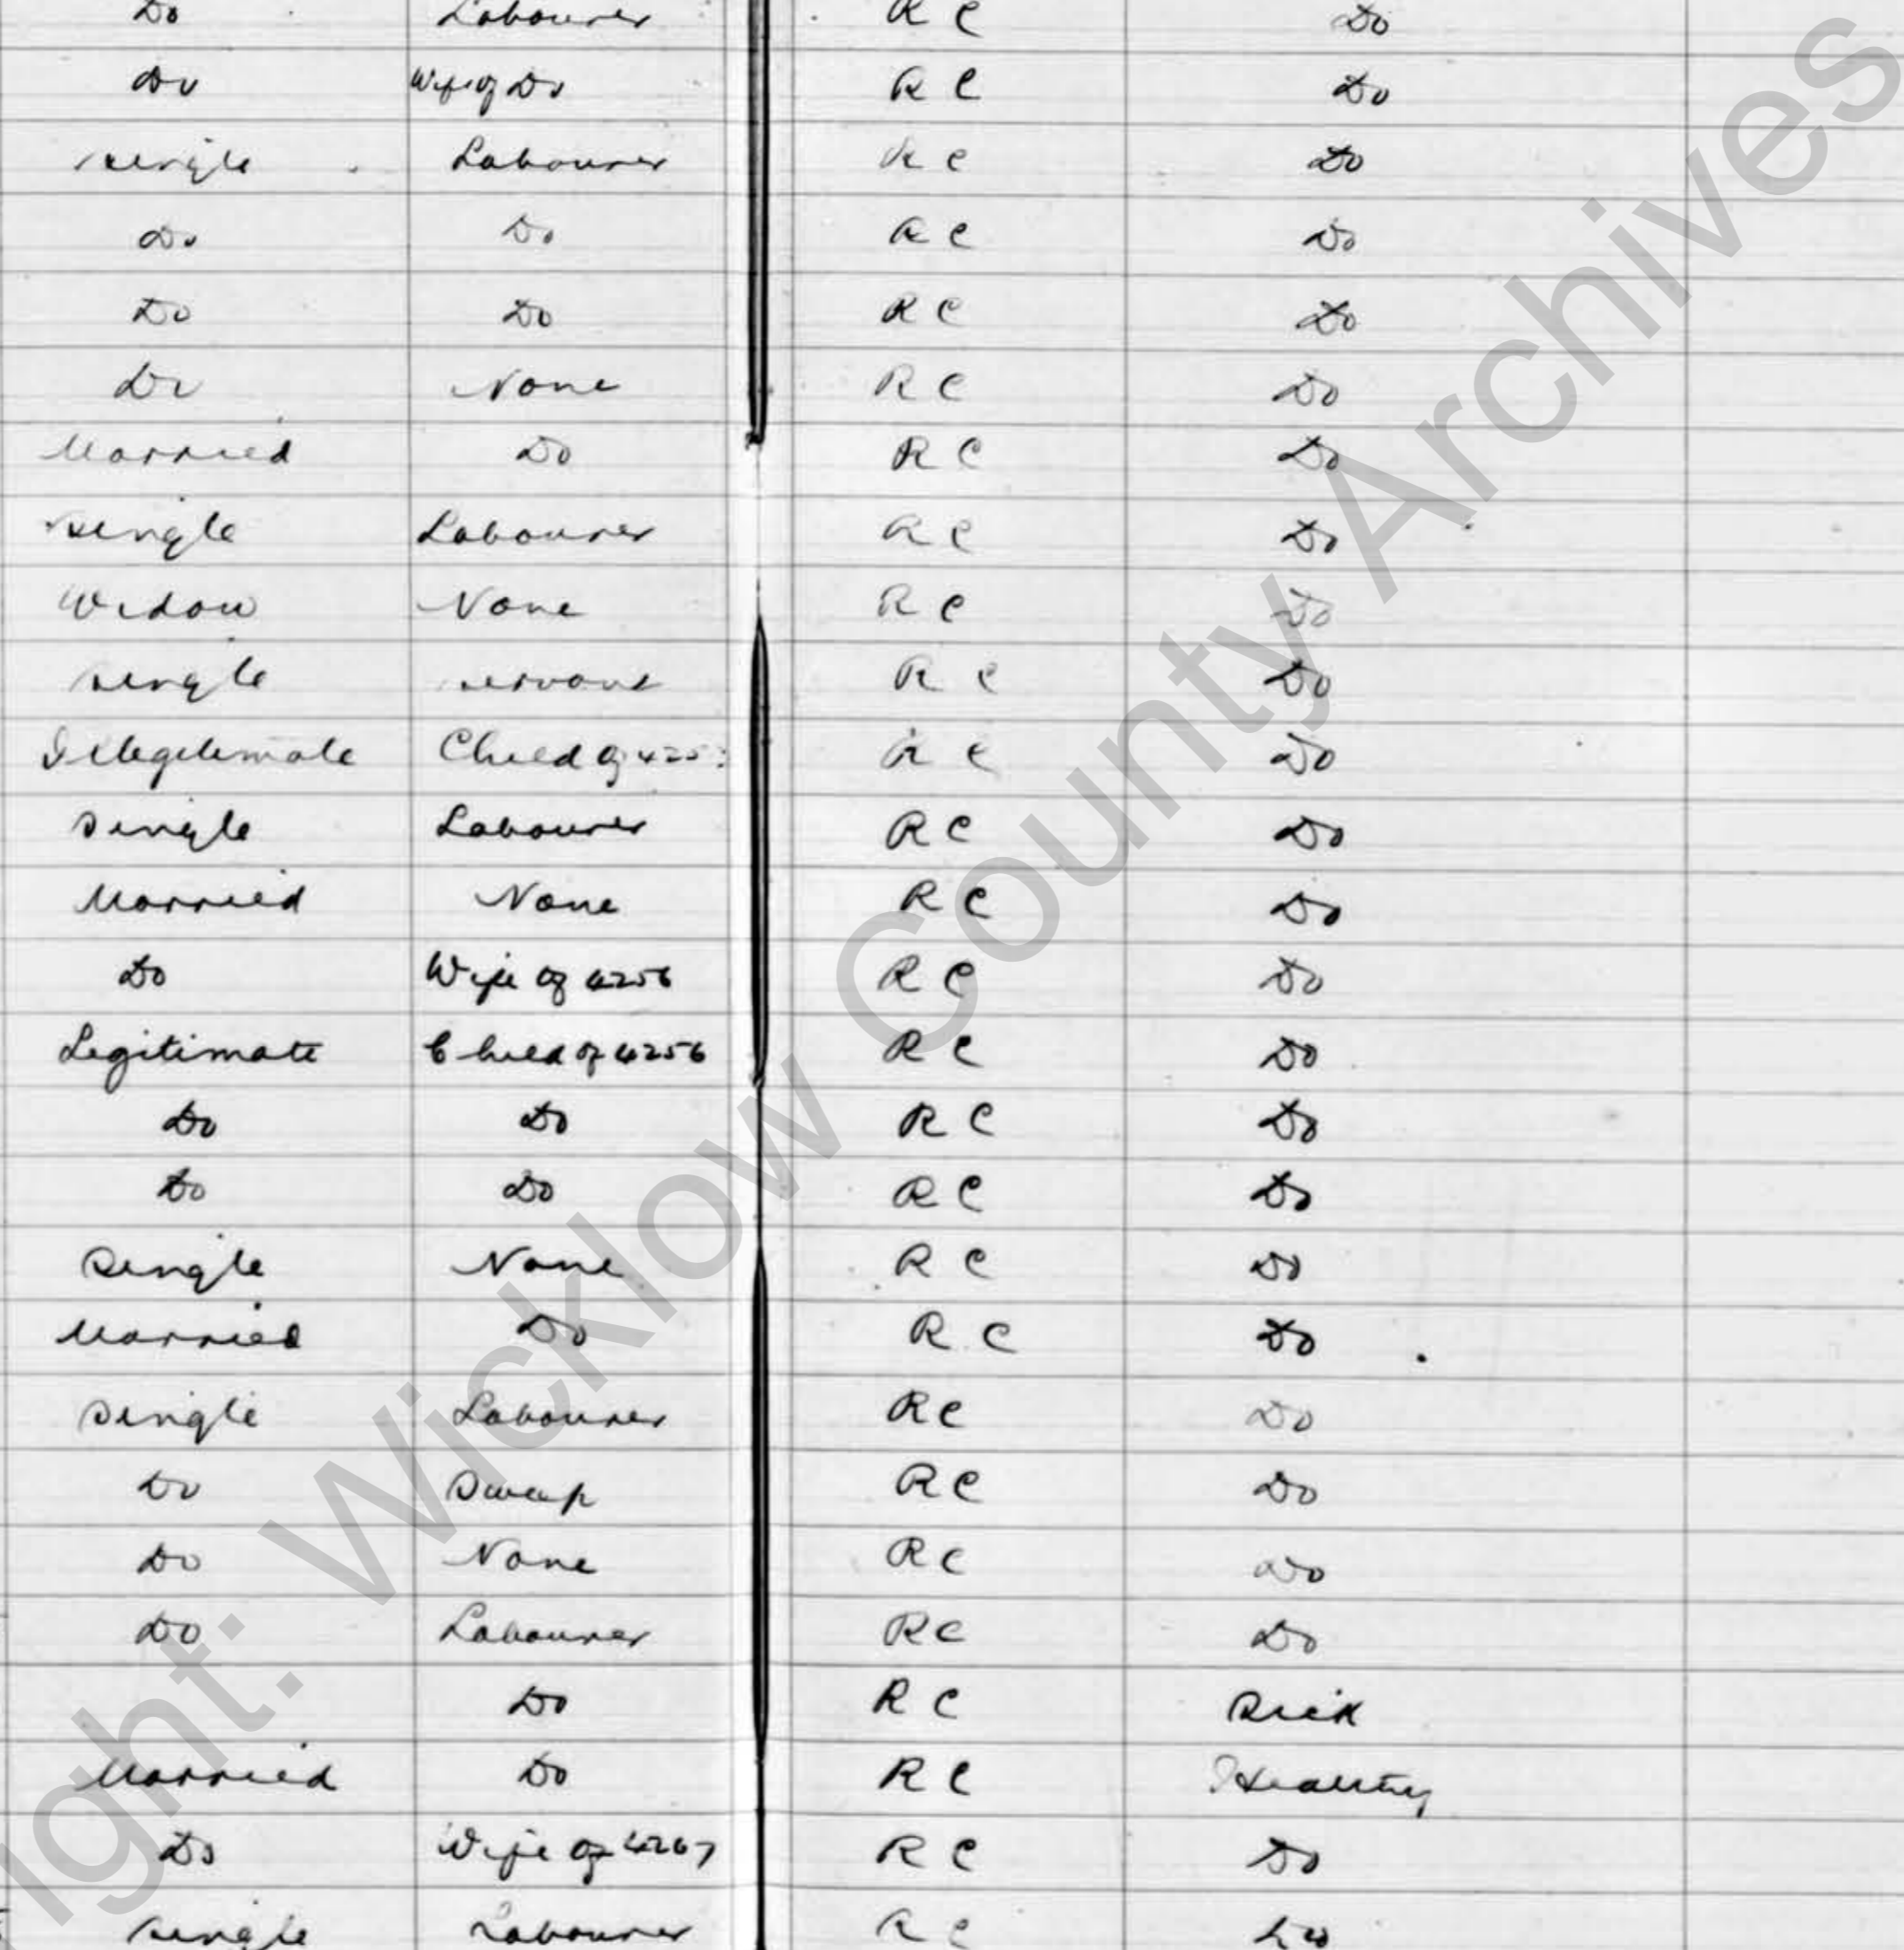 Do Labourer R C Do
Do Wife of Do R C Do
Single Labourer R C Do
Do Do R C Do
Do Do R C Do
Do None R C Do
Married Do R C Do
Single Labourer R C Do
Widow None R C Do
Single Servant R C Do
Illegitimate Child of R C Do
Single Labourer R C Do
Married None R C Do
Do Wife of 4256 R C Do
Legitimate Child of 4256 R C Do
Do Do R C Do
Do Do R C Do
Single None R C Do
Married Do R C Do
Single Labourer R C Do
Do Sweep R C Do
Do None R C Do
Do Labourer R C Do
Do R C Sick
Married Do R C Healthy
Do Wife of 4267 R C Do
Single Labourer R C Do
ight: Wicklow County Archives